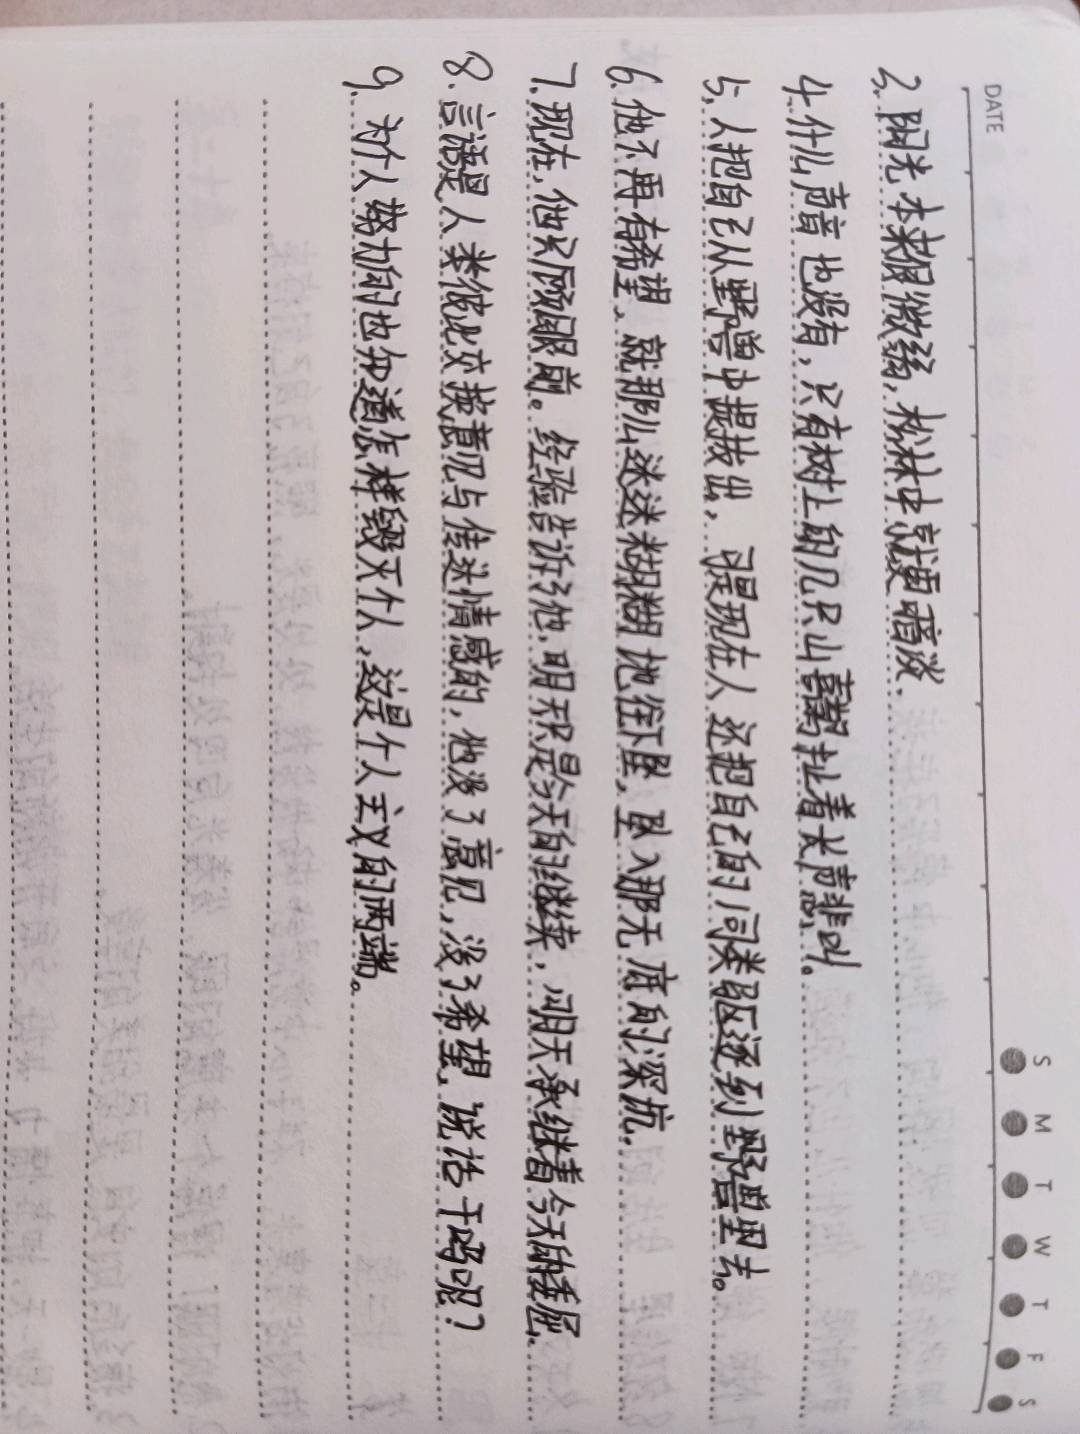 DATE
S M T W T F S
3. 阳光本来很微弱,松林中就更暗淡.
4. 什么声音也没有,只有树上的几只山喜鹊扯着长声悲叫.
5. 人把自己从野兽中提拔出,可是现在人还把自己的同类驱逐到野兽里去。
6. 他不再有希望,就那么迷迷糊糊地往下坠,坠入那无底的深坑.
7. 现在,他只顾眼前。经验告诉了他,明天只是今天的继续,明天承继着今天的委屈.
8. 言语是人类彼此交换意见与传达情感的,他没了意见,没了希望,说话干吗呢?
9. 为个人努力的也知道怎样毁灭个人,这是个人主义的两端。